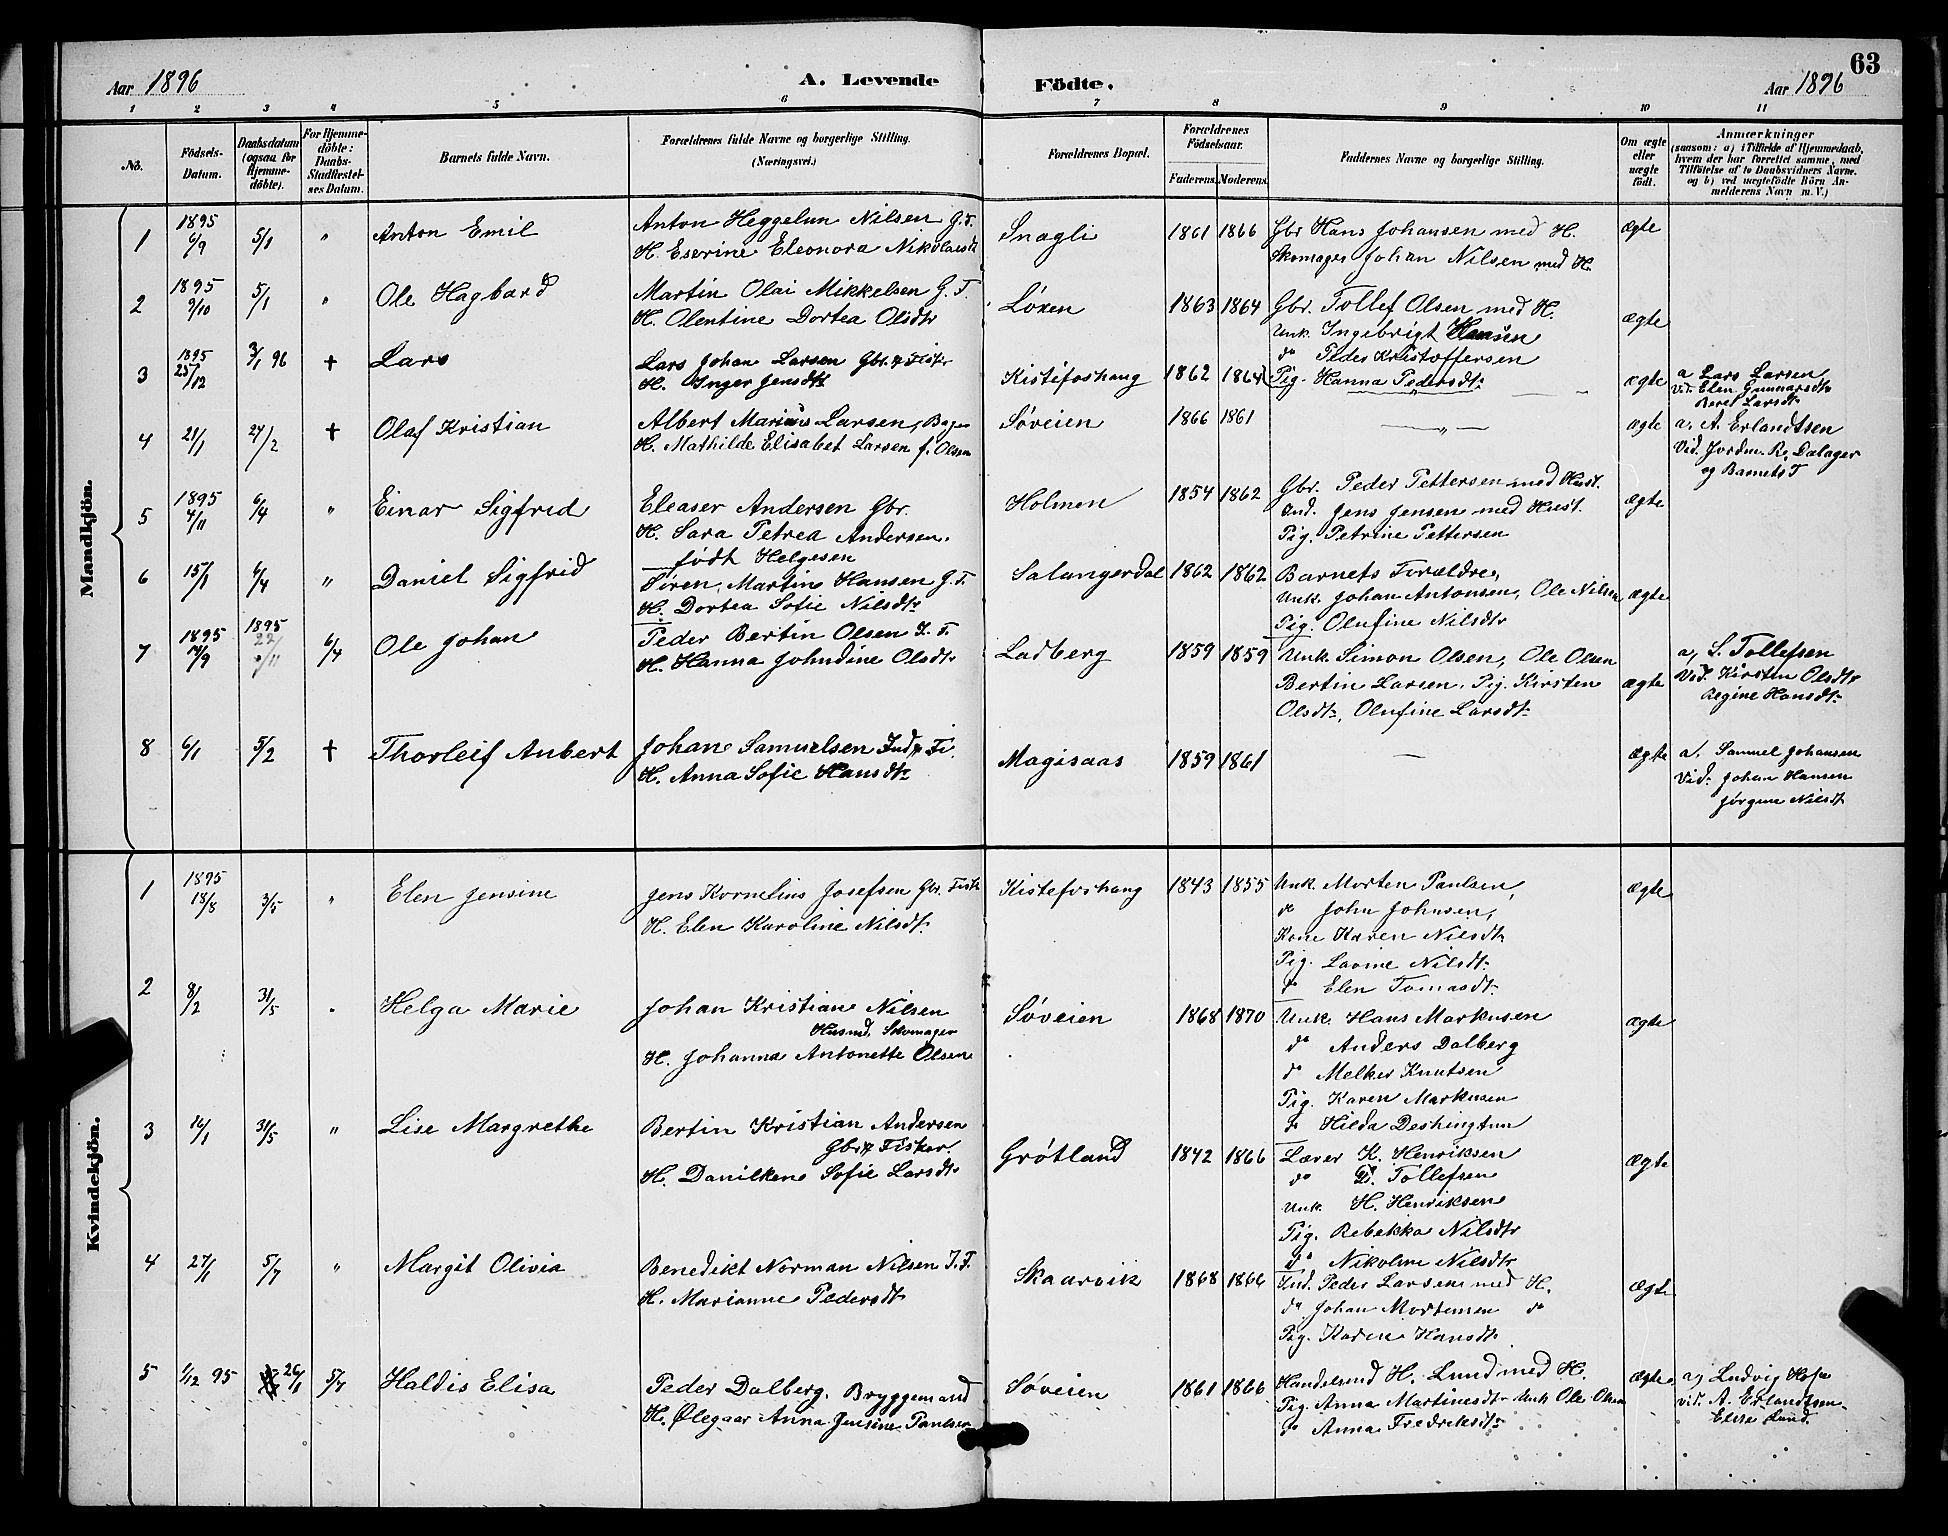 63
Aar 1896
A. Levende
Födte.
Aar 1896
1 2 3 4 5 6 7 8 9 10 11
No.
Födsels-Datum.
Daabsdatum (ogsaa for Hjemme-döbte).
For Hjemme-döbte: Daabs-Stadfæstel-ses Datum.
Barnets fulde Navn.
Forældrenes fulde Navne og borgerlige Stilling. (Næringsvei.)
Forældrenes Bopæl.
Forældrenes Födselsaar.
Faderens. Moderens.
Faddernes Navne og borgerlige Stilling.
Om ægte eller uægte födt.
Anmærkninger
(saasom: a) i Tilfælde af Hjemmedaab, hvem der har forrettet samme, med Tilföielse af to Daabsvidners Navne. og b) ved uægtefödte Börn An-melderens Navn m. V.)
Mandkjön.
1 1895 6/9 5/1 " Anton Emil
Anton Heggelun Nilsen G.F.
H. Eserine Eleonora Nikolaisdt
Snagli 1861 1866
Gbr Hans Johansen med H.
Skomager Johan Nilsen med H.
ægte
2 1895 9/10 5/1 " Ole Hagbard
Martin Olai Mikkelsen G.F.
H. Olentine Dortea Olsdtr
Løxen 1863 1864
Gbr. Tollef Olsen med H.
Unk. Ingebrigt Hansen
do Peder Kristoffersen
Pig. Hanna Pedersdtr
ægte
3 1895 25/12 3/1 96 + Lars
Lars Johan Larsen Gbr. & Fisker
H. Inger Jensdtr
Kistefoshaug 1862 1864
— " —
ægte
a Lars Larsen
Vid. Elen Gunnarsdtr
Beret Larsdtr
4 21/1 24/2 + Olaf Kristian
Albert Marius Larsen, Bager
H. Mathilde Elisabet Larsen f. Olsen
Søveien 1866 1861
— " —
ægte
a, A. Erlandtsen
Vid. Jordm. R. Dalager
og Barnets F
5 1895 4/11 6/4 " Einar Sigfred
Eleaser Andersen Gbr.
H. Sara Petrea Andersen.
født Helgesen
Holmen 1854 1862
Gbr. Peder Pettersen med Hust.
Ind. Jens Jensen med Hust.
Pig. Petrine Pettersen
ægte
6 15/1 6/4 " Daniel Sigfrid
Søren Martin Hansen G.F.
H. Dortea Sofie Nilsdtr
Salangerdal 1862 1862
Barnets Forældre,
Unk. Johan Antonsen, Ole Nilsen
Pig. Olufine Nilsdtr
ægte
7 1895 14/9 1895 22/11 6/4 Ole Johan
Peder Bertin Olsen I.F.
H. Hanna Johndine Olsdtr
Ladberg 1859 1859
Unk. Simon Olsen, Ole Olsen
Bertin Larsen. Pig. Kirsten
Olsdtr, Olufine Larsdtr
ægte
a, S. Tollefsen
Vid. Kirsten Olsdtr
Regine Hansdtr
8 6/1 5/2 + Thorleif Anbert
Johan Samuelsen Ind & Fi.
H. Anna Sofie Hansdtr
Magisaas 1859 1861
—
ægte
a, Samuel Johansen
Vid. Johan Hansen
Jørgine Nilsdt
Kvindekjön.
1 1895 18/8 3/5 " Elen Jensine
Jens Kornelius Josefsen Gbr. Fisk
H. Elen Karoline Nilsdtr
Kistefoshaug 1843 1855
Unk. Morten Paulsen,
do John Johnsen,
Kone Karen Nilsdtr
Pig. Lavine Nilsdtr
do Elen Tomasdtr
ægte
2 8/2 31/5 " Helga Marie
Johan Kristian Nilsen
Husmd, Skomager
H. Johanna Antonette Olsen
Søveien 1868 1870
Unk. Hans Markusen
do Anders Dalberg
do Melker Knutsen
Pig. Karen Markusen
do Hilda Deshingtun
ægte
3 16/1 31/5 " Lise Margrethe
Bertin Kristian Andersen
Gbr & Fisker.
H. Danilkene Sofie Larsdtr
Grøtland 1842 1866
Lærer K. Henriksen
do Tollefsen
Unk. H. Henriksen
Pig. Rebekka Nilsdtr
do Nikoline Nilsdtr
ægte
4 27/1 5/7 " Margit Olivia
Benedikt Norman Nilsen I.F.
H. Marianne Pedersdtr
Skaarvik 1868 1866
Ind. Peder Larsen med H.
do Johan Mortensen do
Pig. Karen Hansdtr
ægte
5 1/12 95 26/1 5/7 Haldis Elisa
Peder Dalberg. Bryggemand
H. Ølegaar Anna Jensine Paulsen
Søveien 1861 1866
Handelsmd H. Lund med H.
Pig. Anna Martinesdtr Unk Ole Olsen
do Anna Fredriksdtr
ægte
a, Ludvig Hofsø
vid. A. Erlandtsen
Elise Lund.